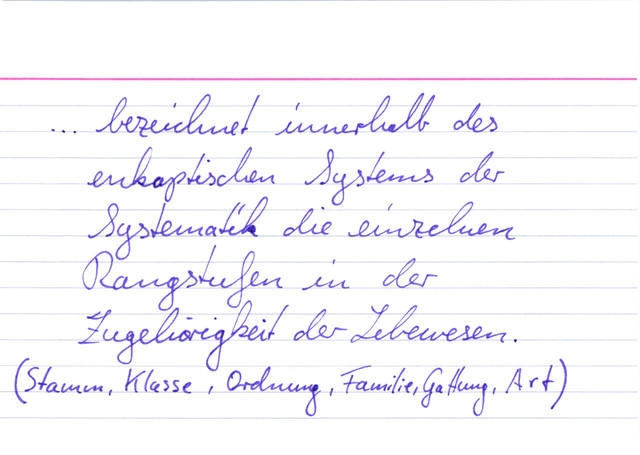 ... bezeichnet innerhalb des
enkaptischen Systems der
Systematik die einzelnen
Rangstufen in der
Zugehörigkeit der Lebewesen.
(Stamm, Klasse, Ordnung, Familie, Gattung, Art)